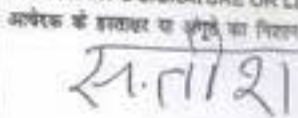 आवेदक के हस्ताक्षर या अंगूठे का निशान
स.तीश